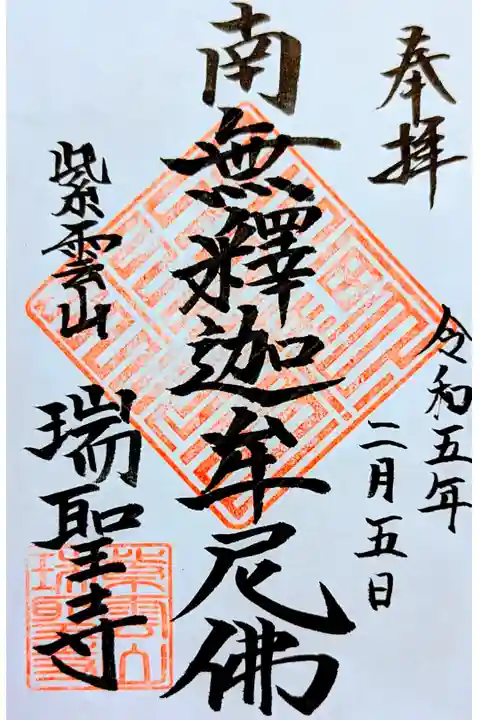 奉拝
令和五年
二月五日
南無釋迦牟尼佛
紫雲山
瑞聖寺
紫雲山
瑞聖寺